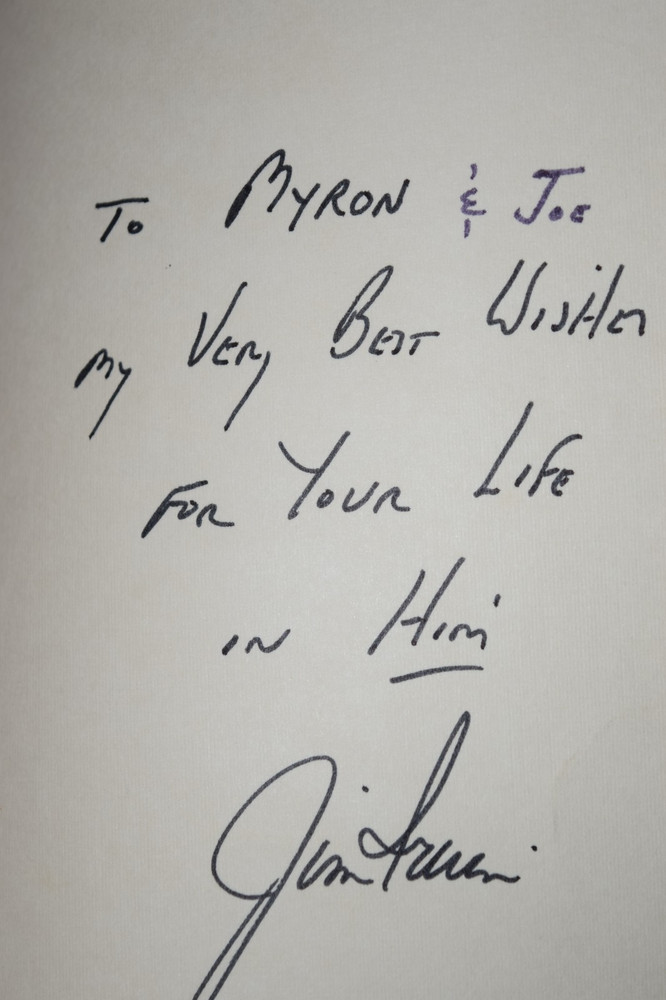 To MYRON & JOE
MY VERY BEST WISHES
FOR YOUR LIFE
IN HIM
Jim Irwin